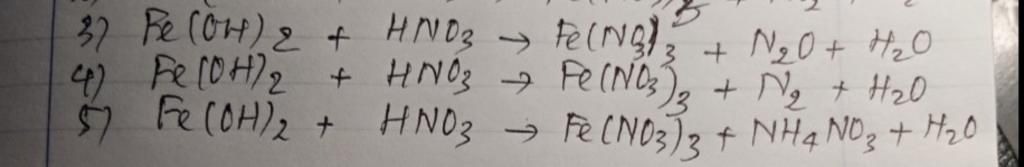 3) Fe(OH)2 + HNO3 → Fe(NO3)3 + N2O + H2O
4) Fe(OH)2 + HNO3 → Fe(NO3)3 + N2 + H2O
5) Fe(OH)2 + HNO3 → Fe(NO3)3 + NH4NO3 + H2O